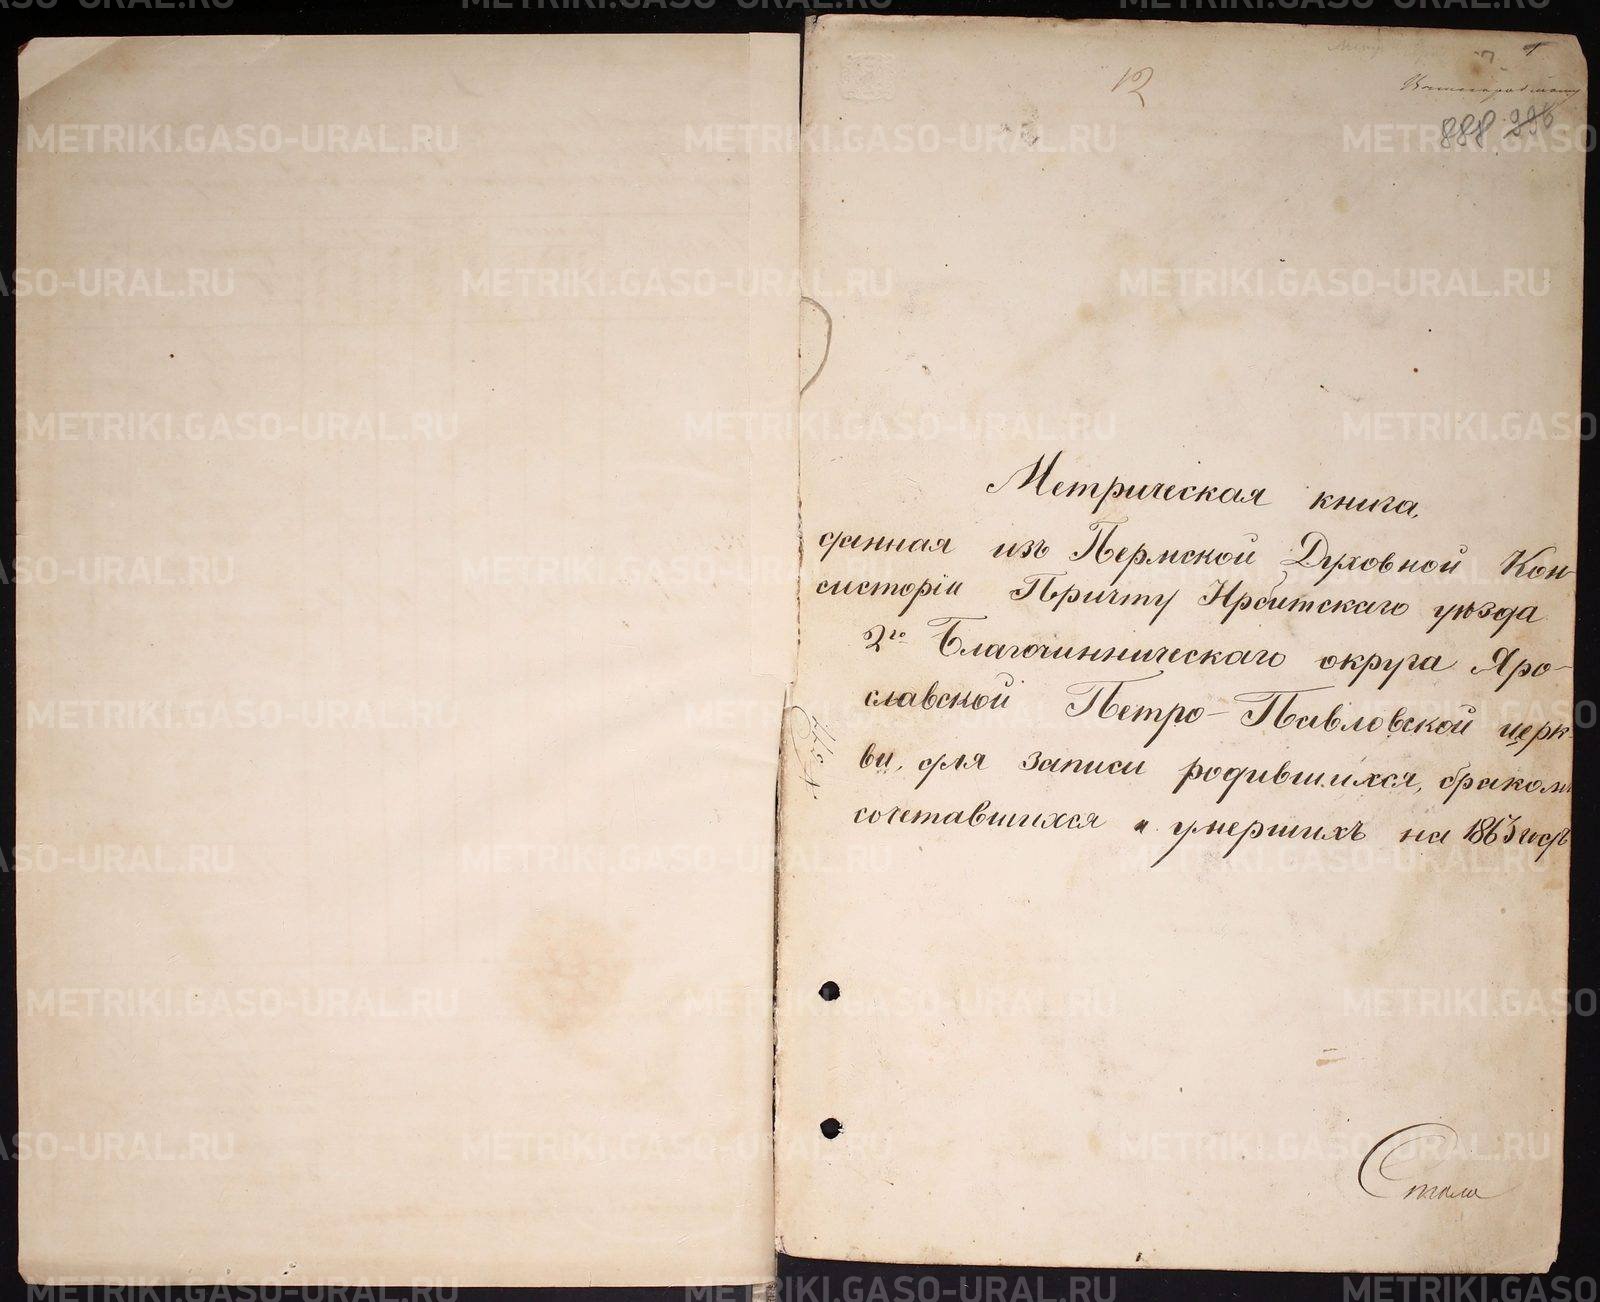 12
888 996
Метрическая книга,
данная изъ Пермской Духовной Кон-
систоріи Причту Ирбитскаго уѣзда
2го Благочинническаго округа Яро-
славской Петро-Павловской церк-
ви, для записи родившихся, браком
сочетавшихся и умершихъ на 1863 годъ
METRIKI.GASO-URAL.RU